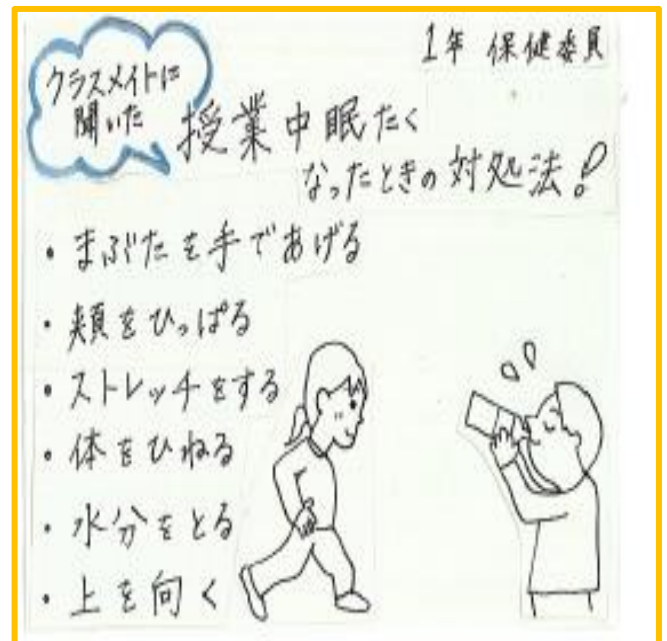 1年 保健委員
クラスメイトに
聞いた
授業中眠たく
なったときの対処法!
・まぶたを手であげる
・頬をひっぱる
・ストレッチをする
・体をひねる
・水分をとる
・上を向く